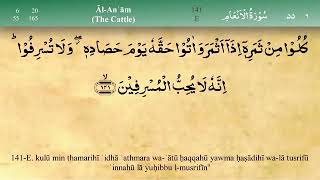 6 20
55 165
Āl-An'ām
(The Cattle)
141
E
سُوْرَةُ الْاَنْعَامِ
٦
٥٥
كُلُوْا مِنْ ثَمَرِهٖۤ اِذَاۤ اَثْمَرَ وَاٰتُوْا حَقَّهٗ يَوْمَ حَصَادِهٖ ۖ وَلَا تُسْرِفُوْا ؕ
اِنَّهٗ لَا يُحِبُّ الْمُسْرِفِيْنَ ۙ ١٤١
141-E. kulū min thamarihī idhā athmara wa- ātū ḥaqqahū yawma ḥaṣādihī wa-lā tusrifū
innahū lā yuḥibbu l-musrifīn